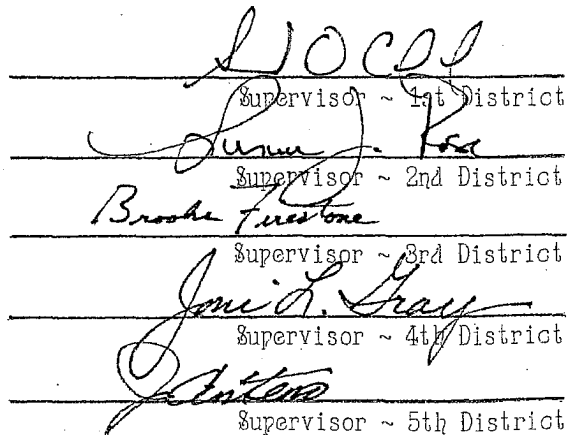 Supervisor ~ 1st District
Susan J. Rose
Supervisor ~ 2nd District
Brooks Firestone
Supervisor ~ 3rd District
Joni L. Gray
Supervisor ~ 4th District
Supervisor ~ 5th District